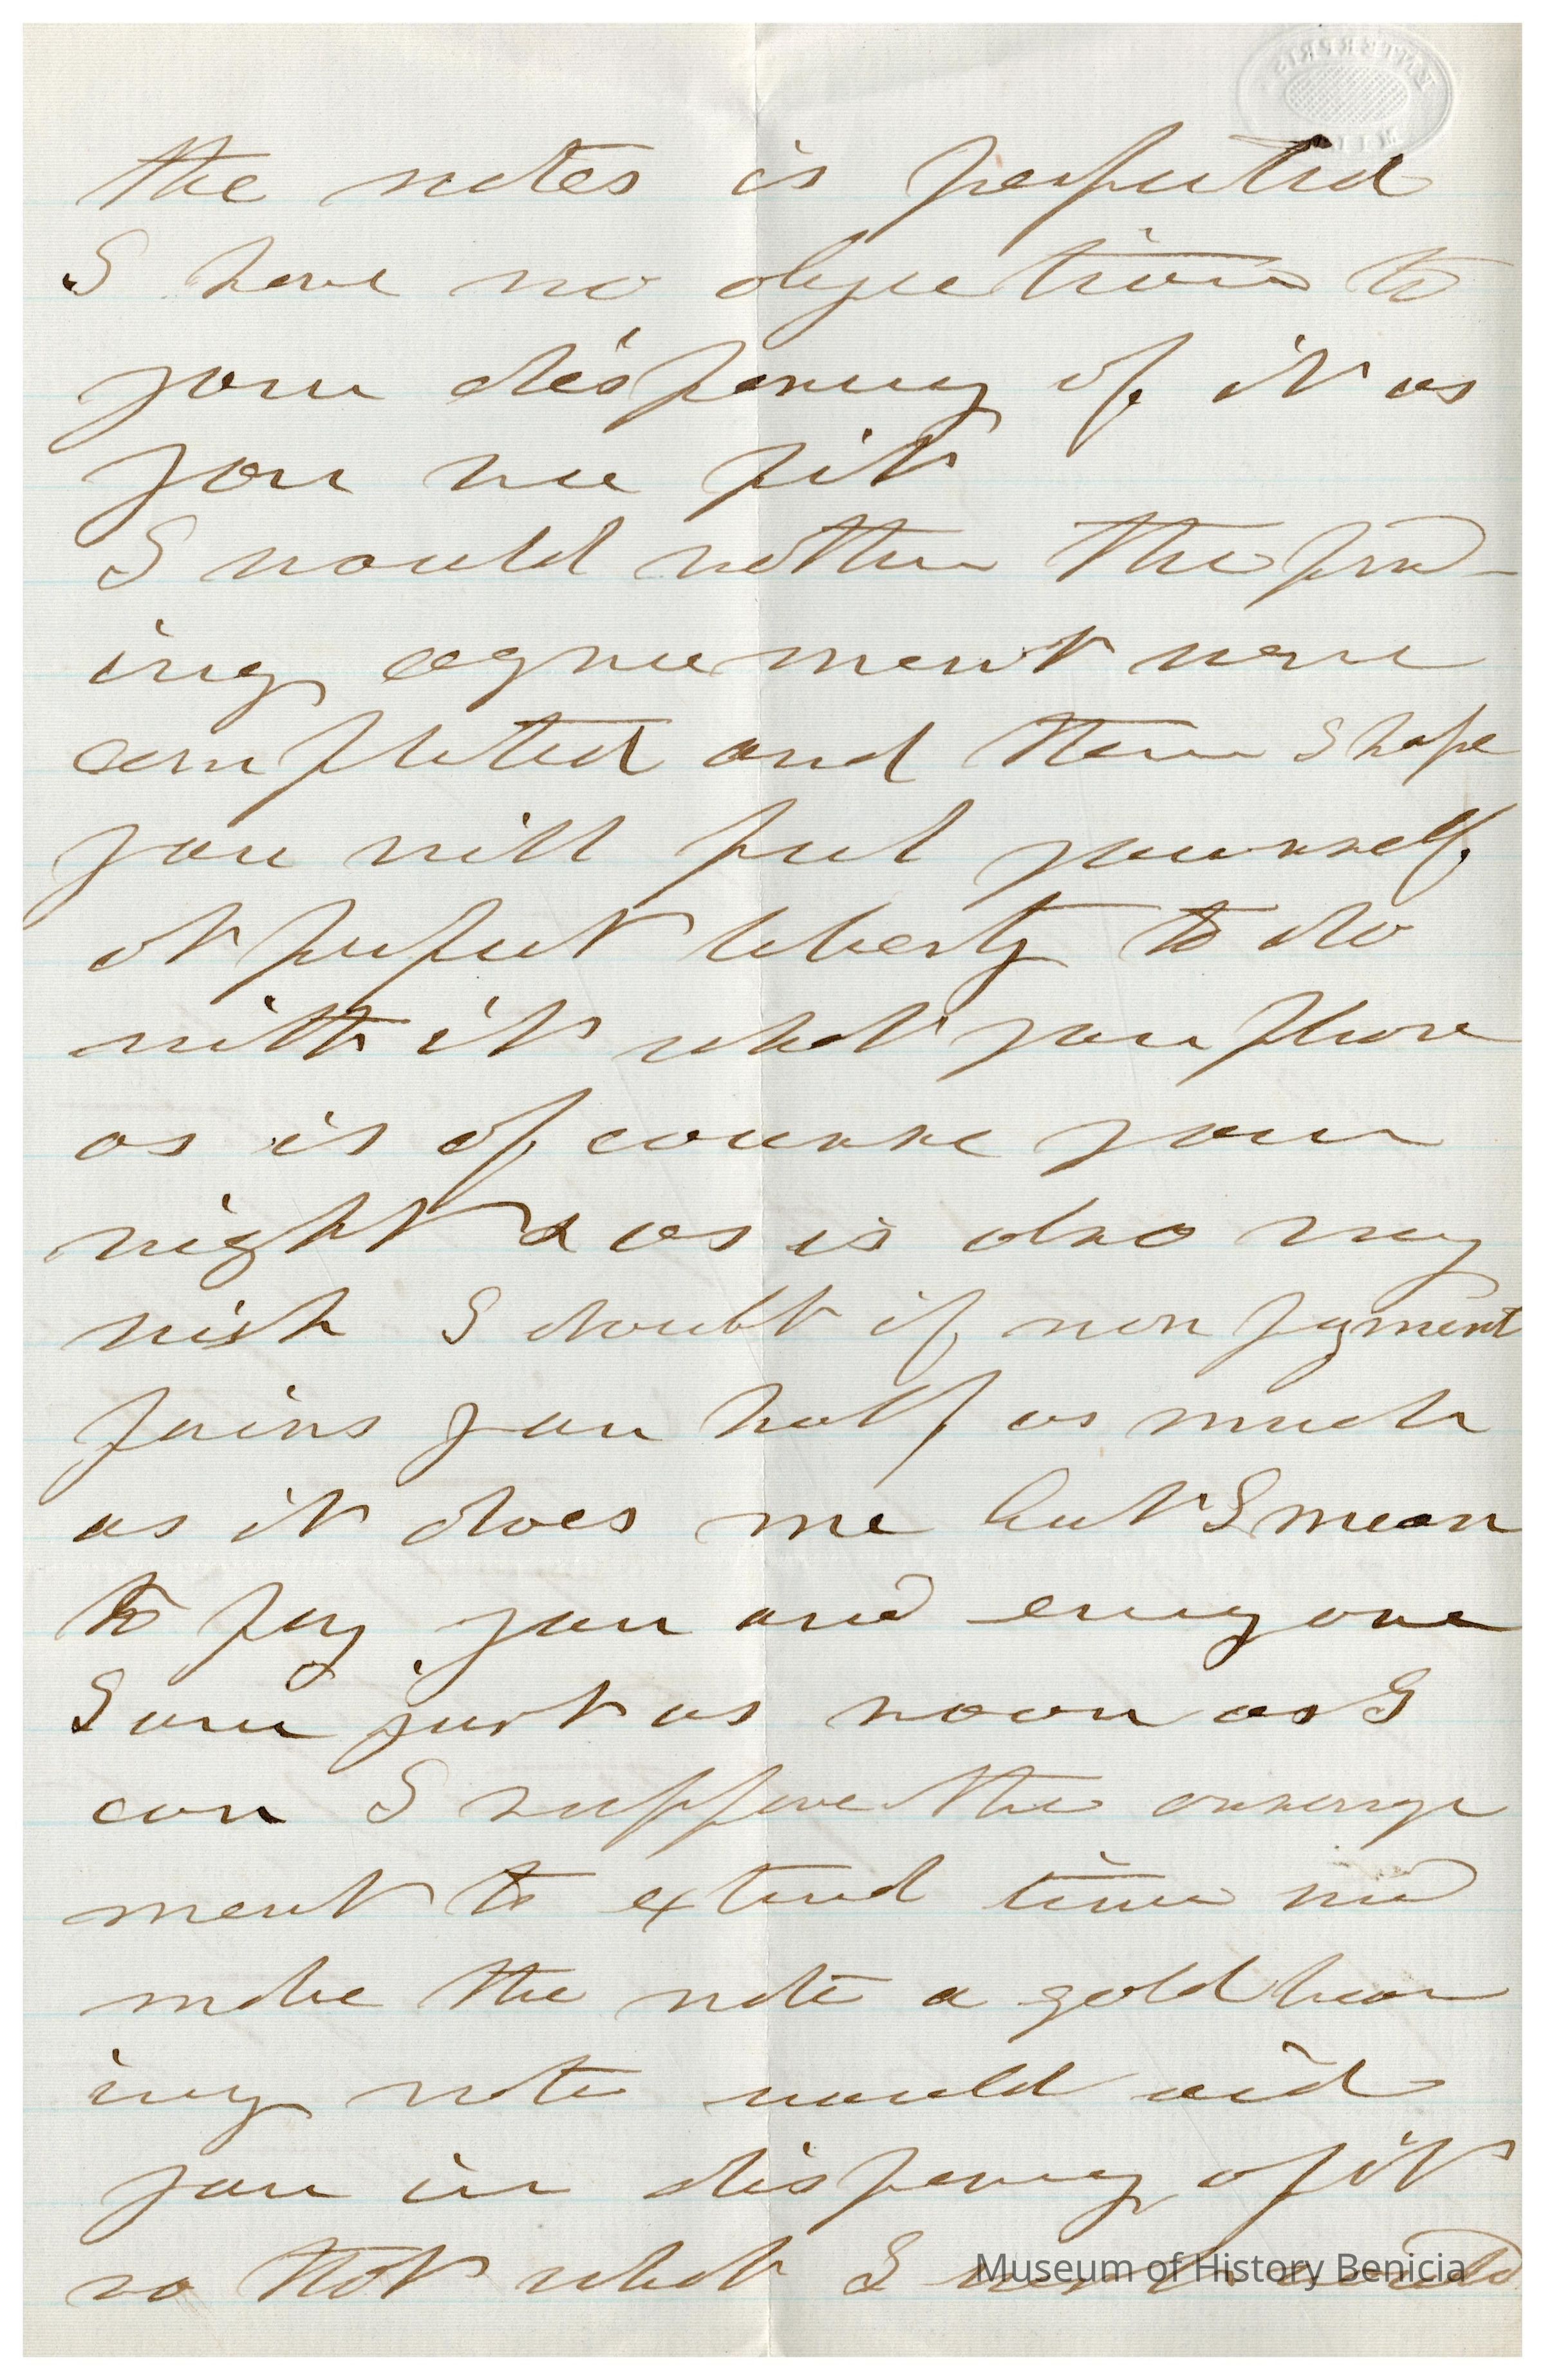 the notes is perfected
I have no objections to
your disposing of it as
you see fit
I would rather the pend-
ing agreement were
completed and then I hope
you will feel yourself
at perfect liberty to do
with it what you please
as is of course your
right & as is also my
wish I doubt if non payment
pains you half as much
as it does me but I mean
to pay you and every one
I owe just as soon as I
can I suppose the arrange
ment to extend time and
make the note a gold bear
ing note would aid
you in disposing of it
so that what I would
Museum of History Benicia